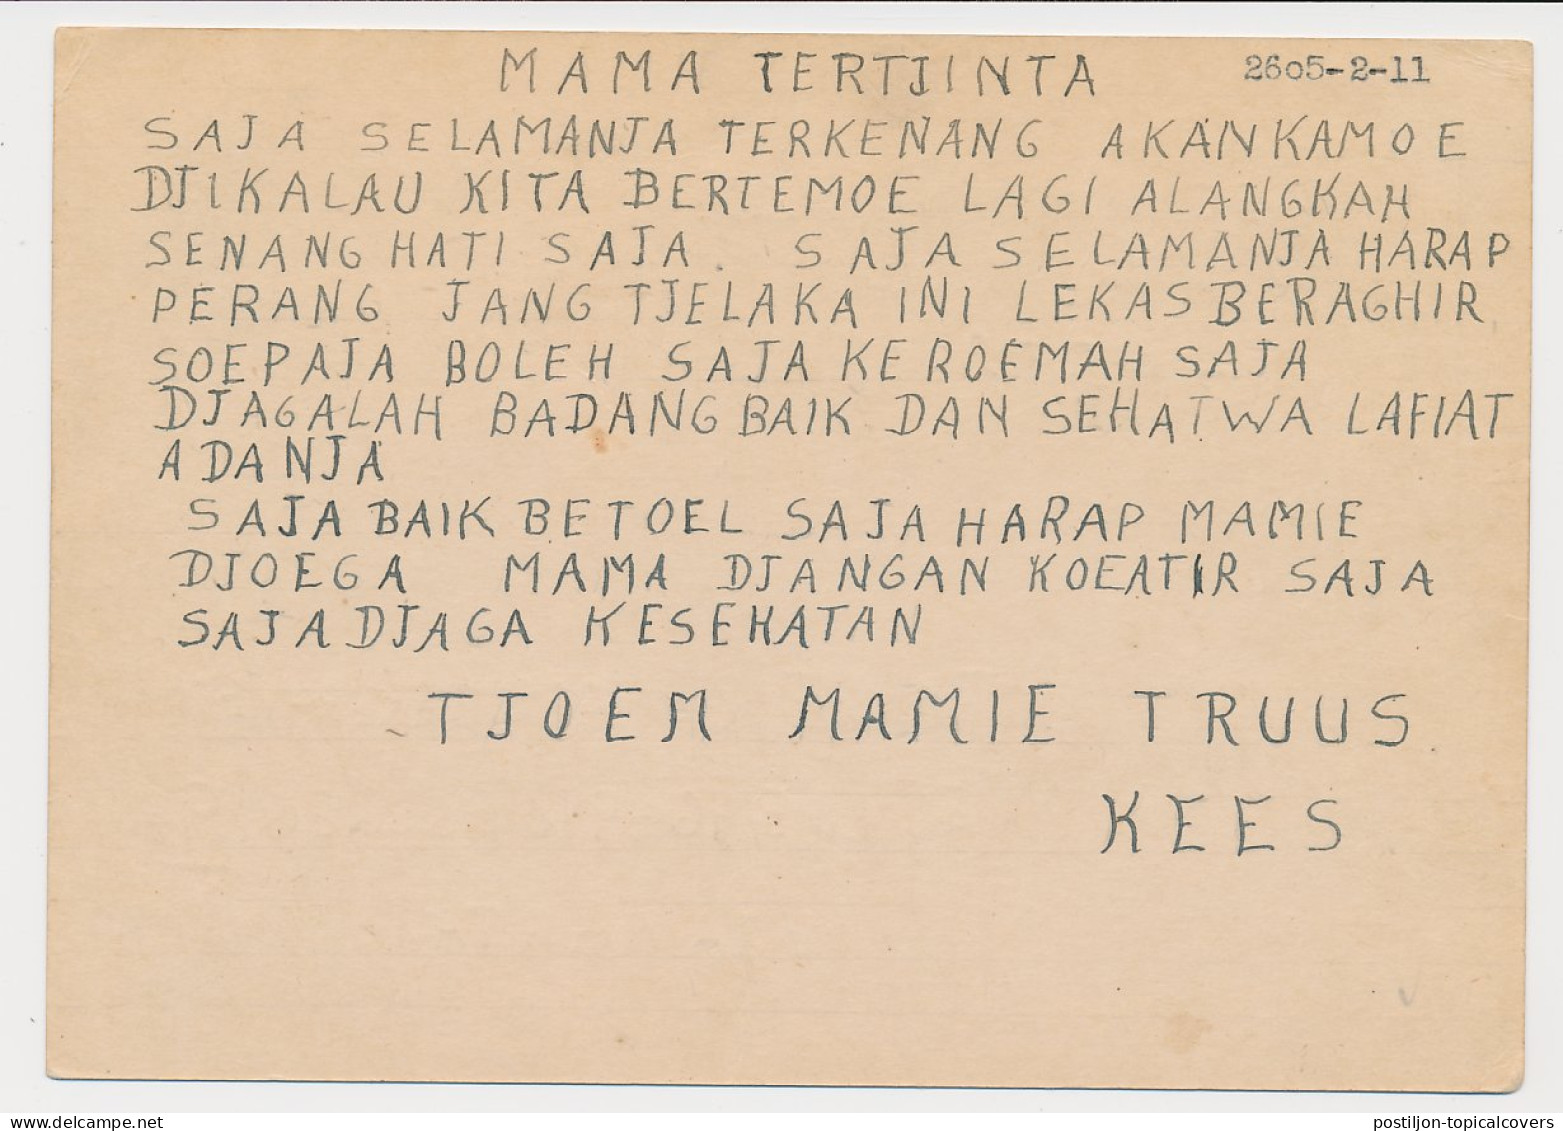 MAMA TERTJINTA 2605-2-11
SAJA SELAMANJA TERKENANG AKAN KAMOE
DJIKALAU KITA BERTEMOE LAGI ALANGKAH
SENANG HATI SAJA. SAJA SELAMANJA HARAP
PERANG JANG TJELAKA INI LEKAS BERAGHIR
SOEPAJA BOLEH SAJA KE ROEMAH SAJA
DJAGALAH BADANG BAIK DAN SEHAT WA LAFIAT
ADANJA
SAJA BAIK BETOEL SAJA HARAP MAMIE
DJOEGA MAMA DJANGAN KOEATIR SAJA
SAJA DJAGA KESEHATAN
TJOEM MAMIE TRUUS
KEES
postiljon-topicalcovers